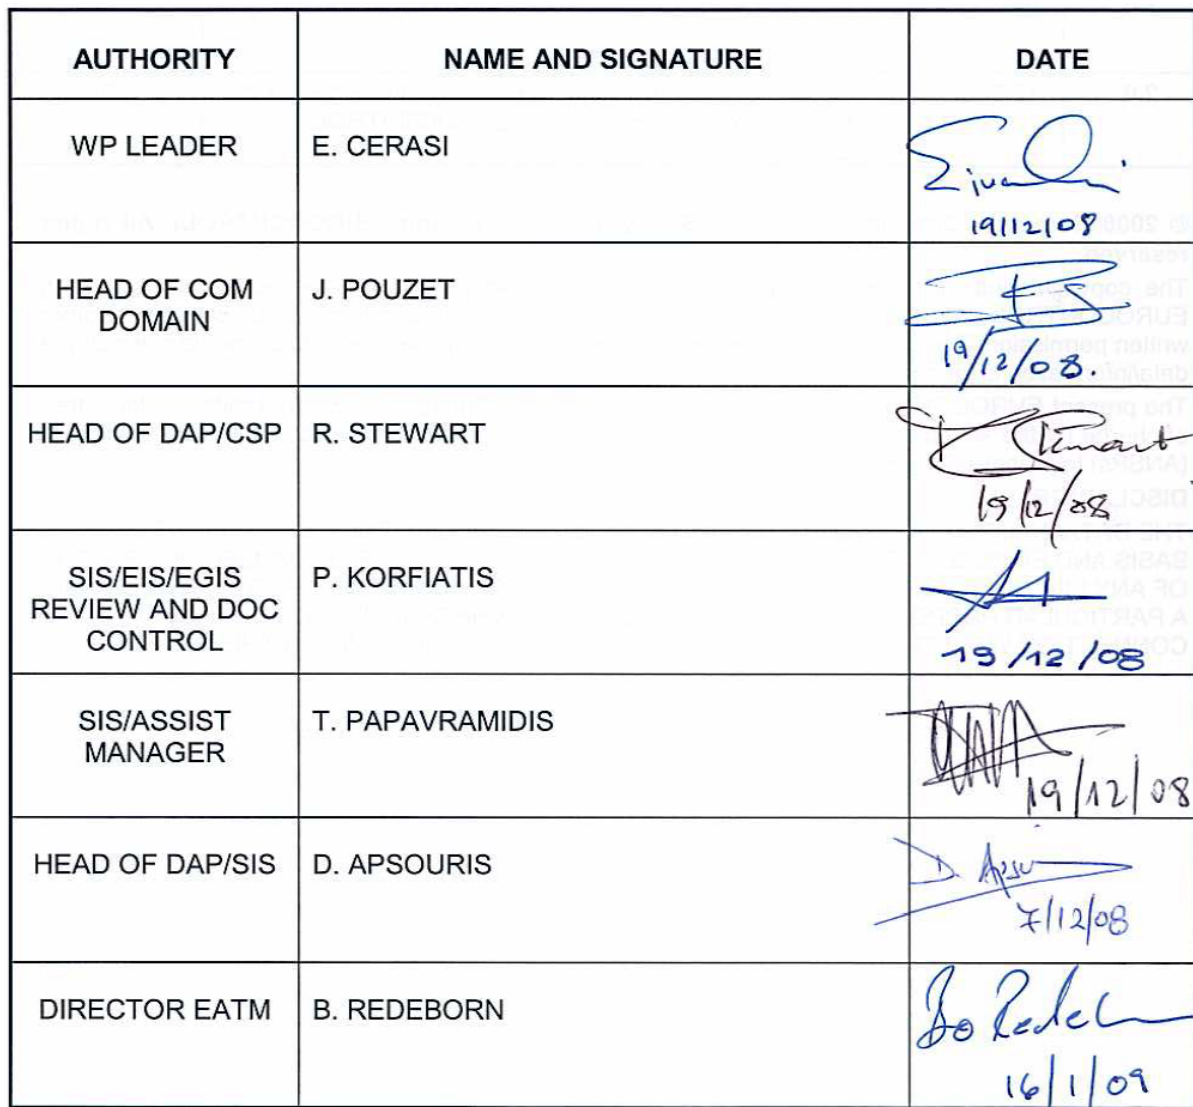 AUTHORITY NAME AND SIGNATURE DATE
WP LEADER E. CERASI
19/12/08
HEAD OF COM
DOMAIN
J. POUZET
19/12/08.
HEAD OF DAP/CSP R. STEWART
Stewart
19/12/08
SIS/EIS/EGIS
REVIEW AND DOC
CONTROL
P. KORFIATIS
19/12/08
SIS/ASSIST
MANAGER
T. PAPAVRAMIDIS
19/12/08
HEAD OF DAP/SIS D. APSOURIS
D. Apsou
7/12/08
DIRECTOR EATM B. REDEBORN
Bo Rede
16/1/09